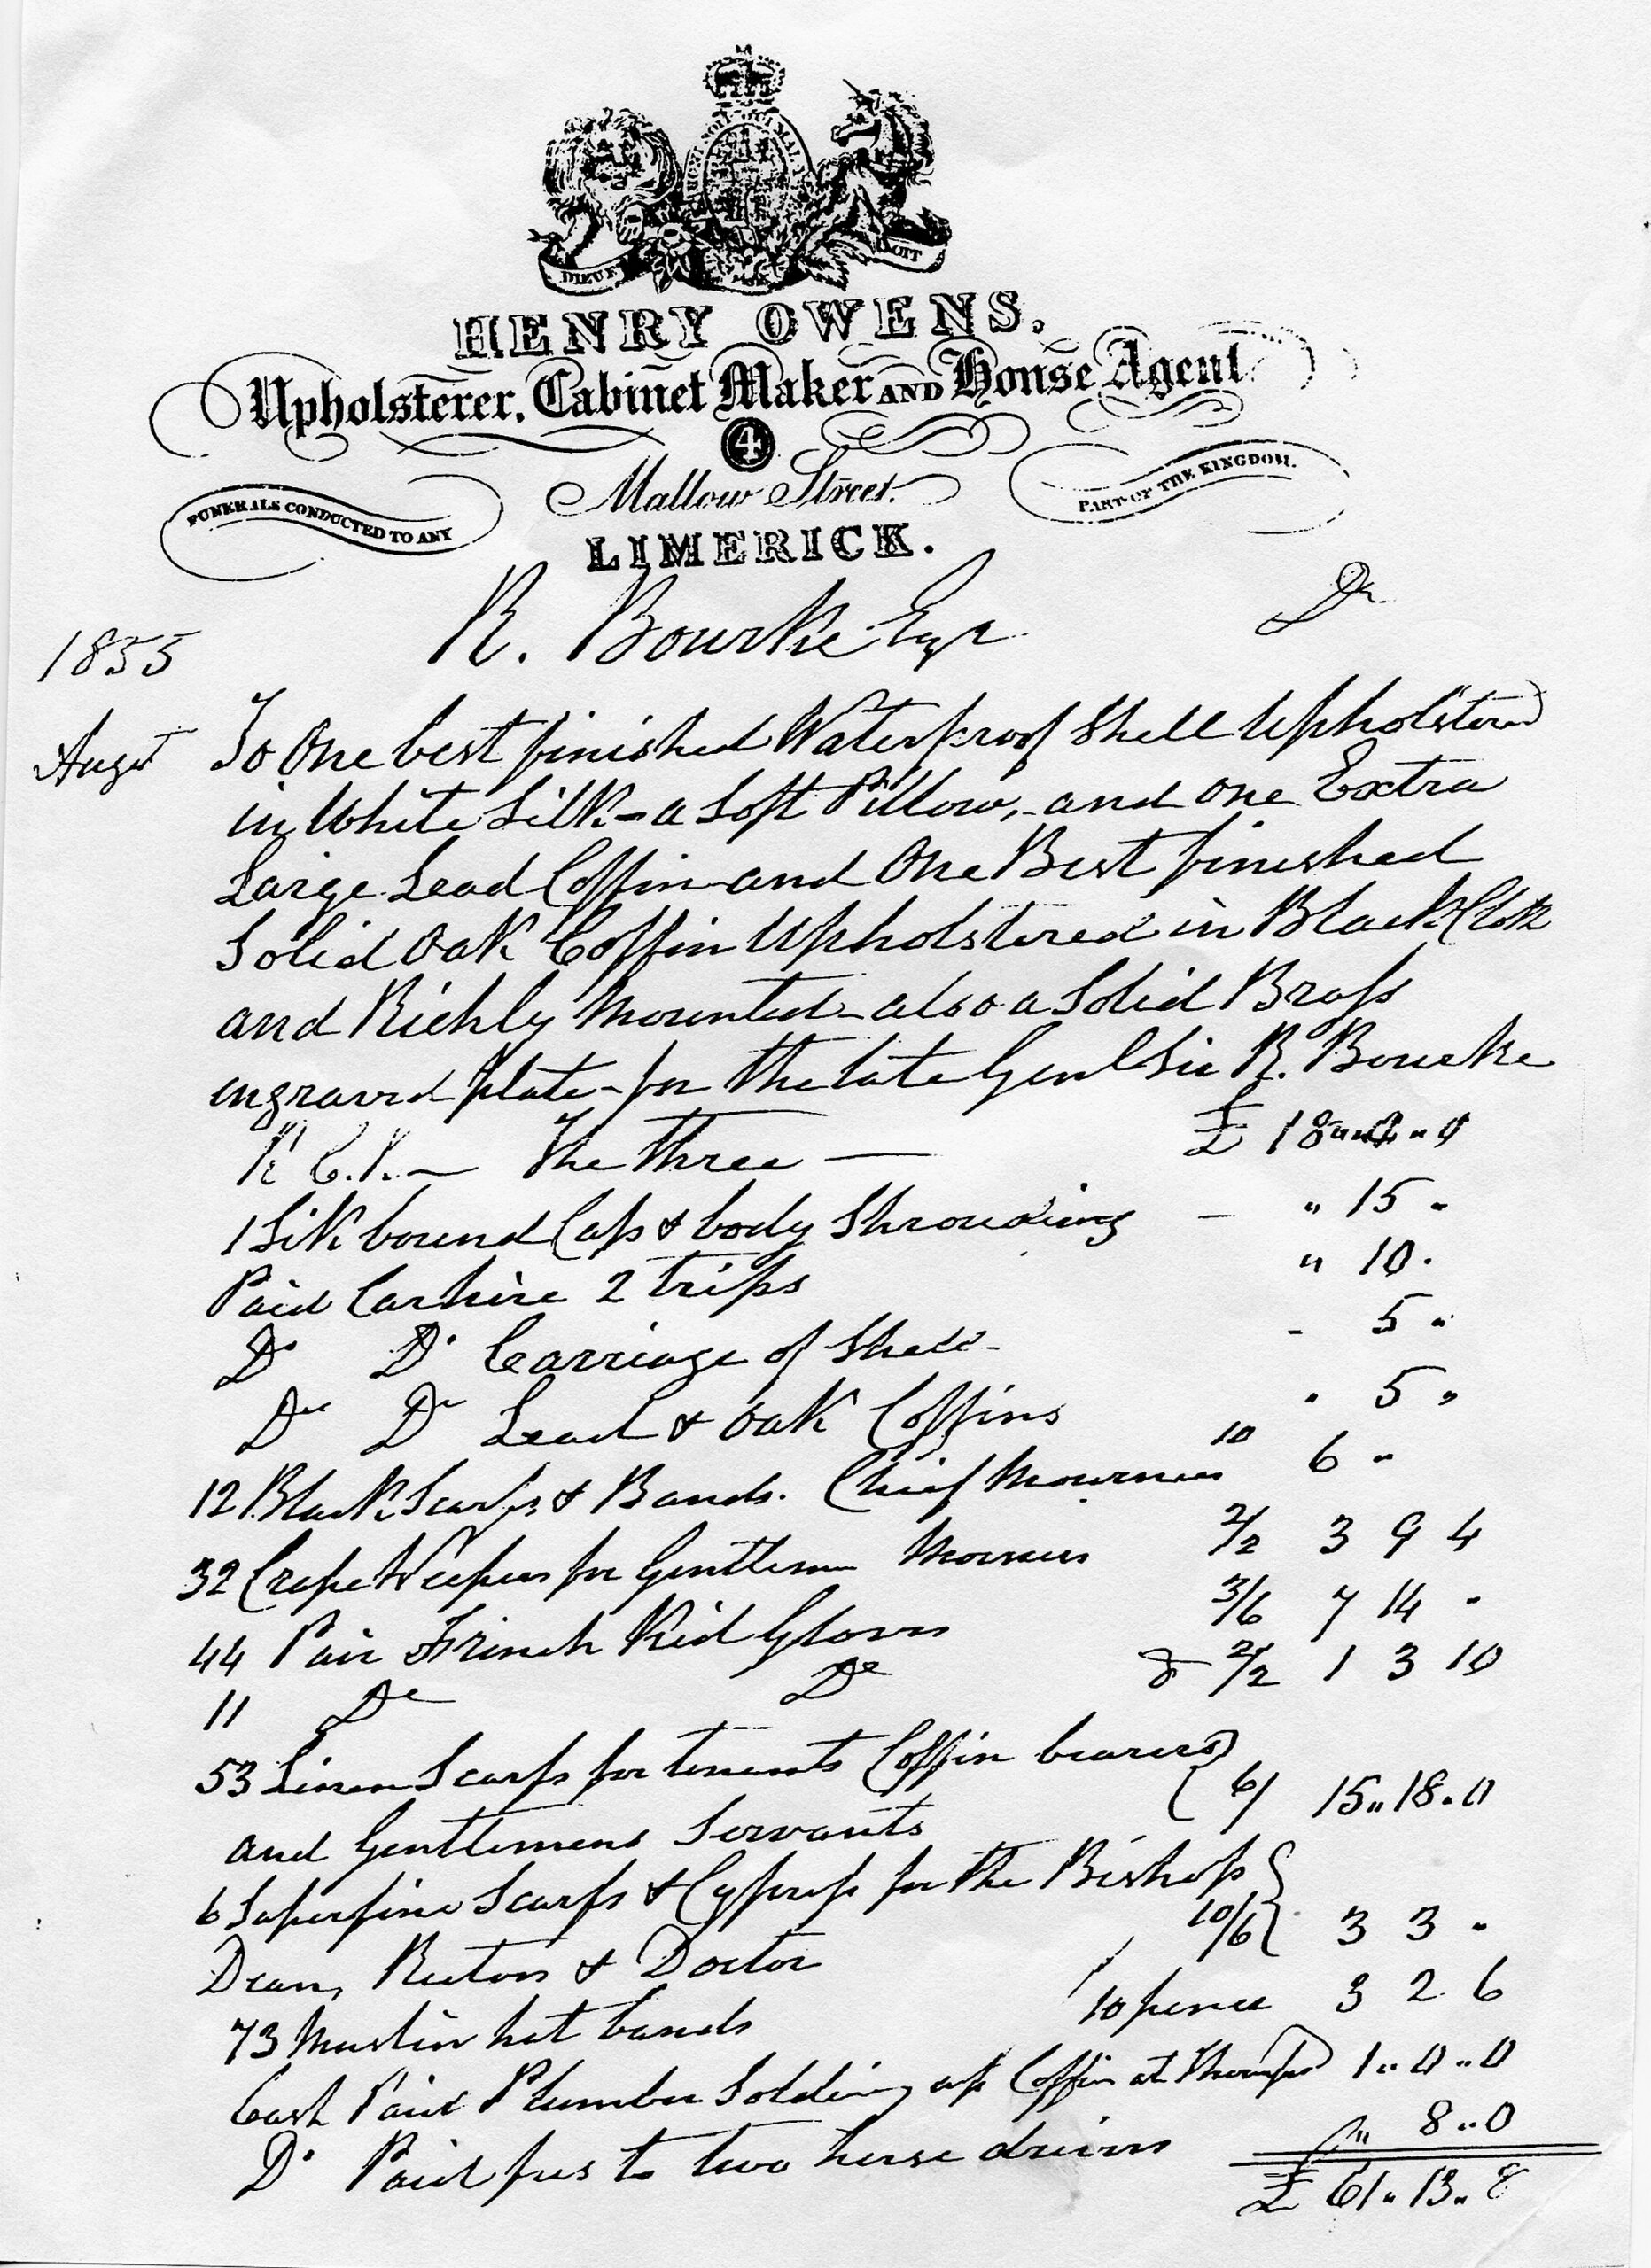 DIEU ET
HENRY OWENS.
Upholsterer, Cabinet Maker AND House Agent
4
FUNERALS CONDUCTED TO ANY
Mallow Street.
PART OF THE KINGDOM.
LIMERICK.
R. Bourke Esqr Dr
1855
Augst To One best finished Waterproof Shell Upholstered
in White Silk - a Soft Pillow, - and one Extra
Large Lead Coffin and One Best finished
Solid Oak Coffin Upholstered in Black Cloth
and Richly Mounted - also a Solid Brass
engraved plate - for the late Genl Sir R. Bourke
K.C.B. — The three — £ 18 " " 0
1 Silk bound Cap & body Shrouding — " 15 "
Paid Car hire 2 trips " 10 .
Do Do Carriage of Shell - - 5 "
Do Do Lead & Oak Coffins " 5 "
12 Black Scarfs & Bands. Chief Mourners 10 6 "
32 Crape Weepers for Gentlemen Mourners 2/2 3 9 4
44 Pair French Kid Gloves 3/6 7 14 -
11 Do Do 2/2 1 3 10
53 Linen Scarfs for tenants Coffin bearers
and Gentlemens Servants 6/ 15 " 18 . 0
6 Superfine Scarfs & Cyprus for the Bishop
Dean, Rectors & Doctor 10/6 3 3 "
73 Muslin hat bands 10 pence 3 2 6
Cash Paid Plumber Soldering up Coffin at 1 " 0 " 0
Do Paid fees to two herse drivers " 8 " 0
£ 61 " 13 " 8